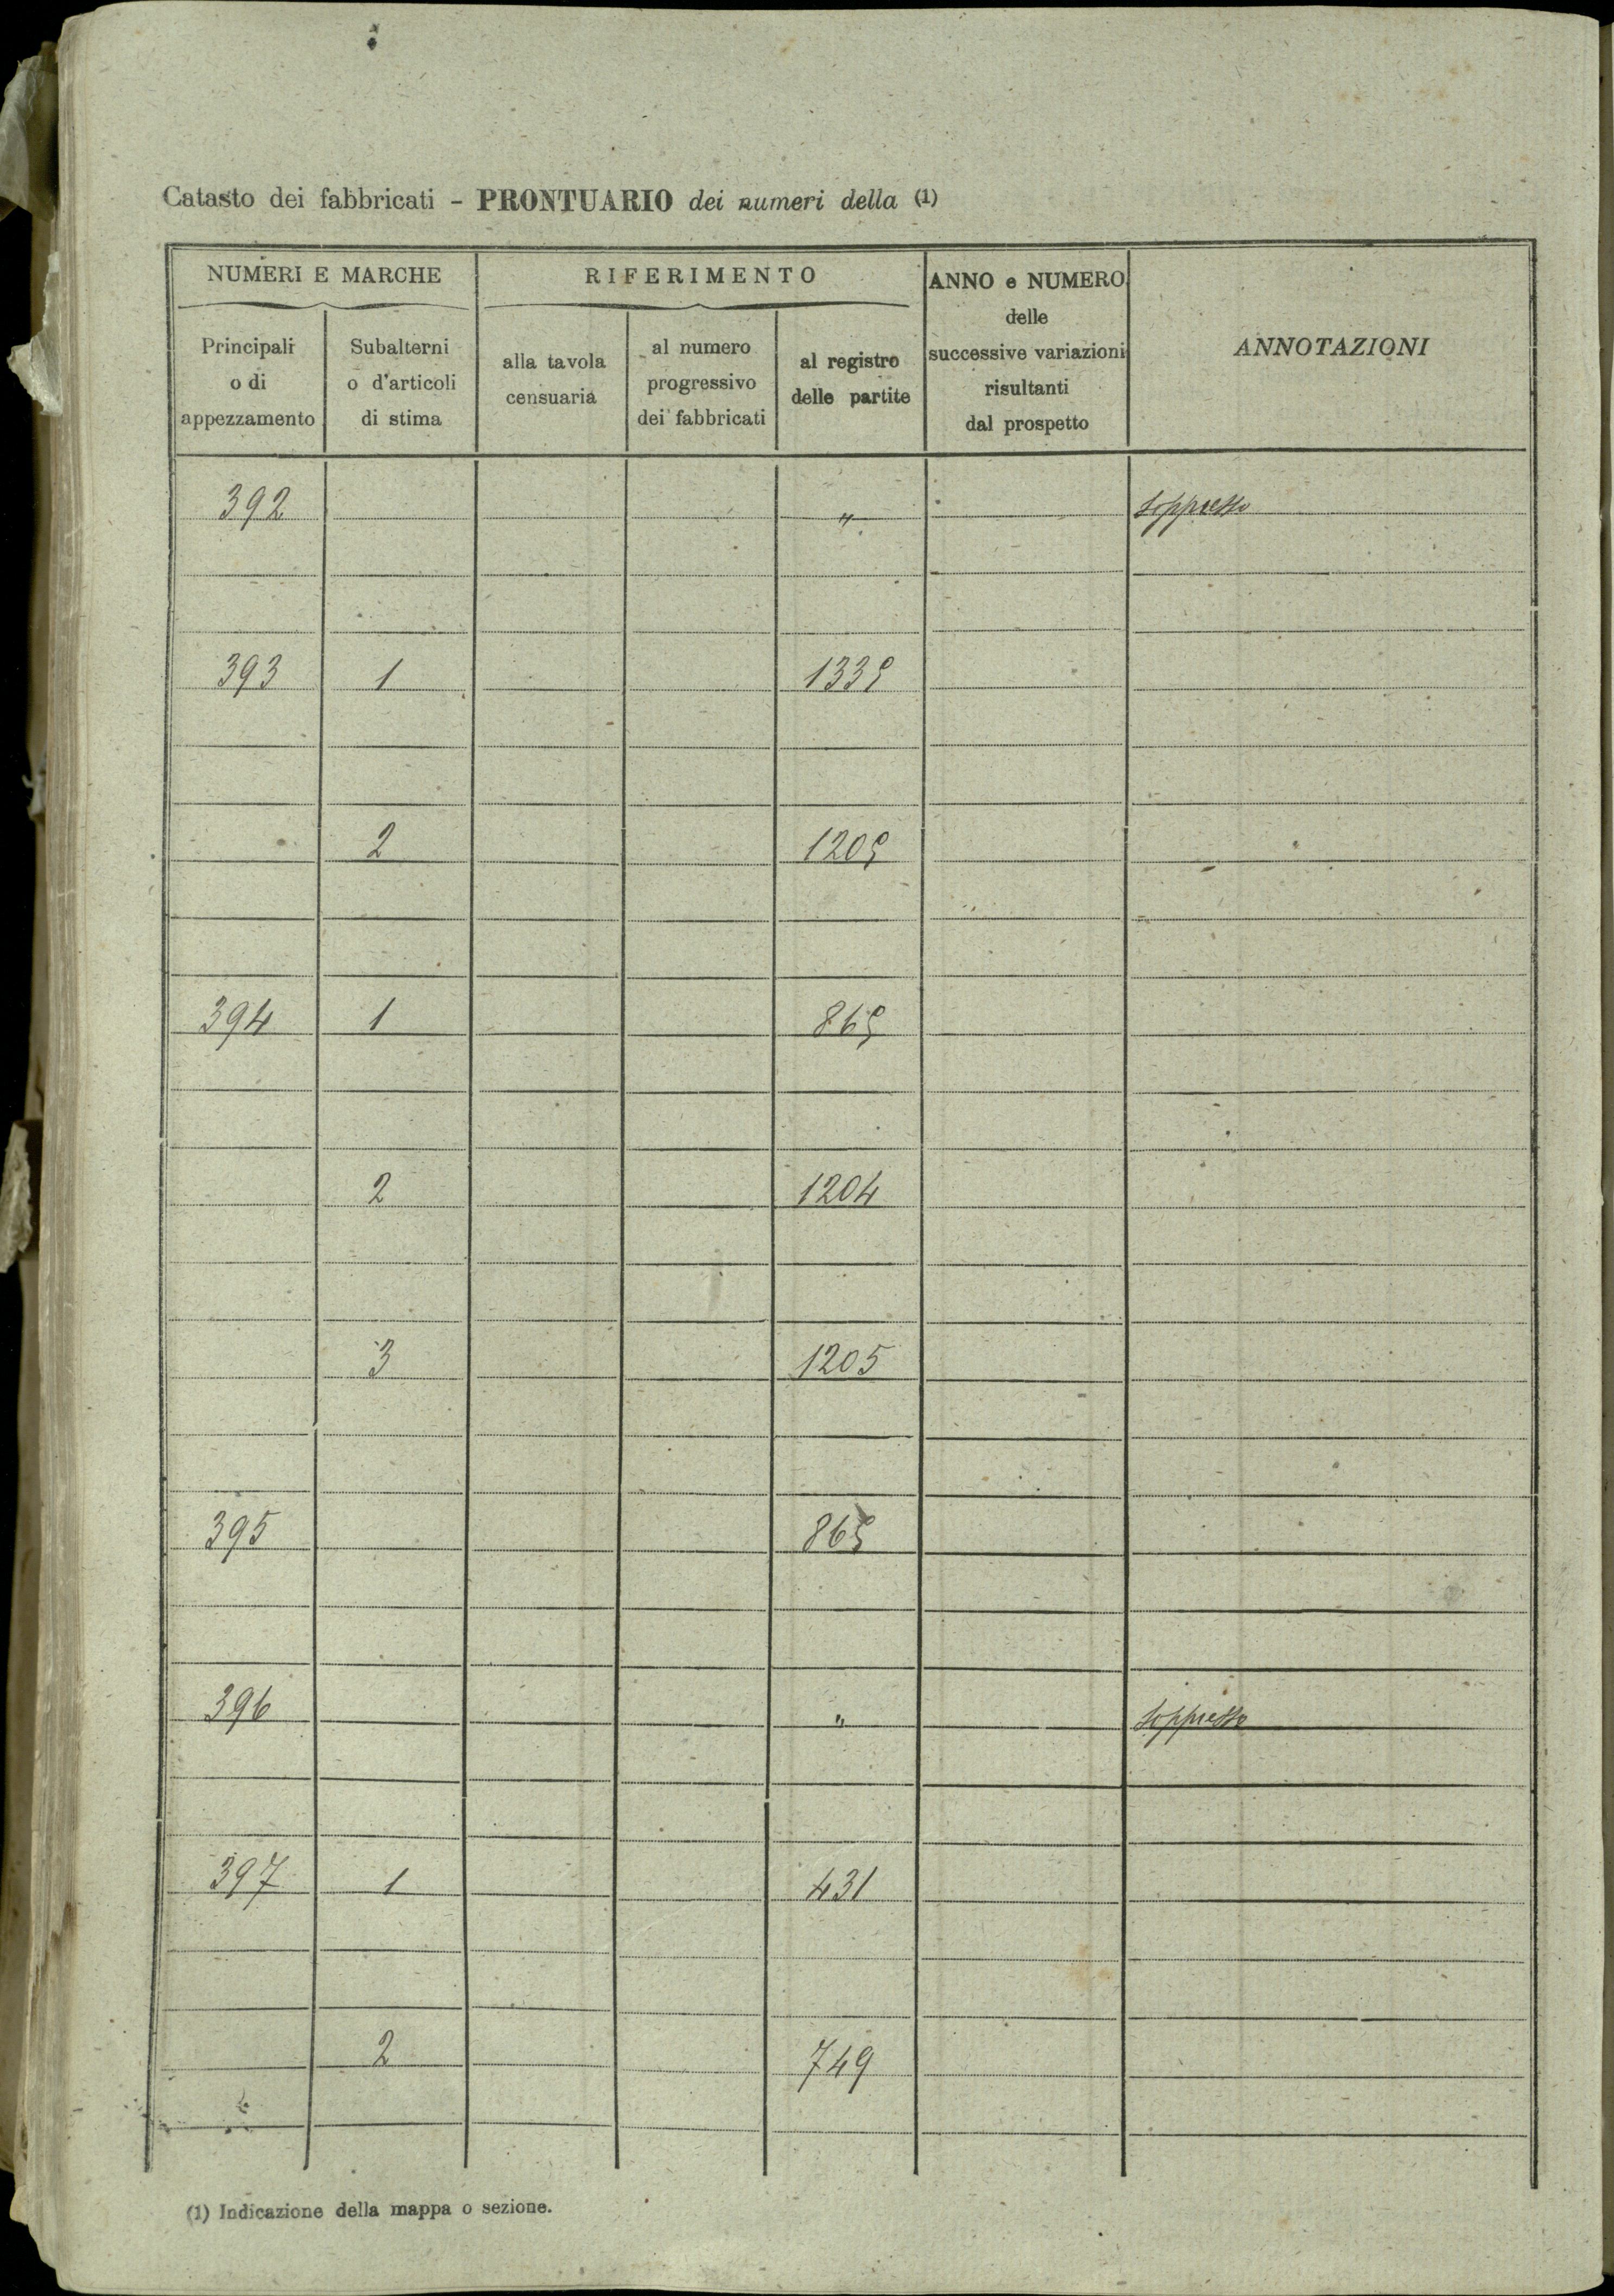 Catasto dei fabbricati - PRONTUARIO dei numeri della (1)
NUMERI E MARCHE
RIFERIMENTO
ANNO e NUMERO
delle
successive variazioni
risultanti
dal prospetto
ANNOTAZIONI
Principali
o di
appezzamento
Subalterni
o d'articoli
di stima
alla tavola
censuaria
al numero
progressivo
dei fabbricati
al registro
delle partite
392 " soppresso
393 1 1339
2 1209
394 1 869
2 1204
3 1205
395 869
396 " soppresso
397 1 431
2 749
(1) Indicazione della mappa o sezione.